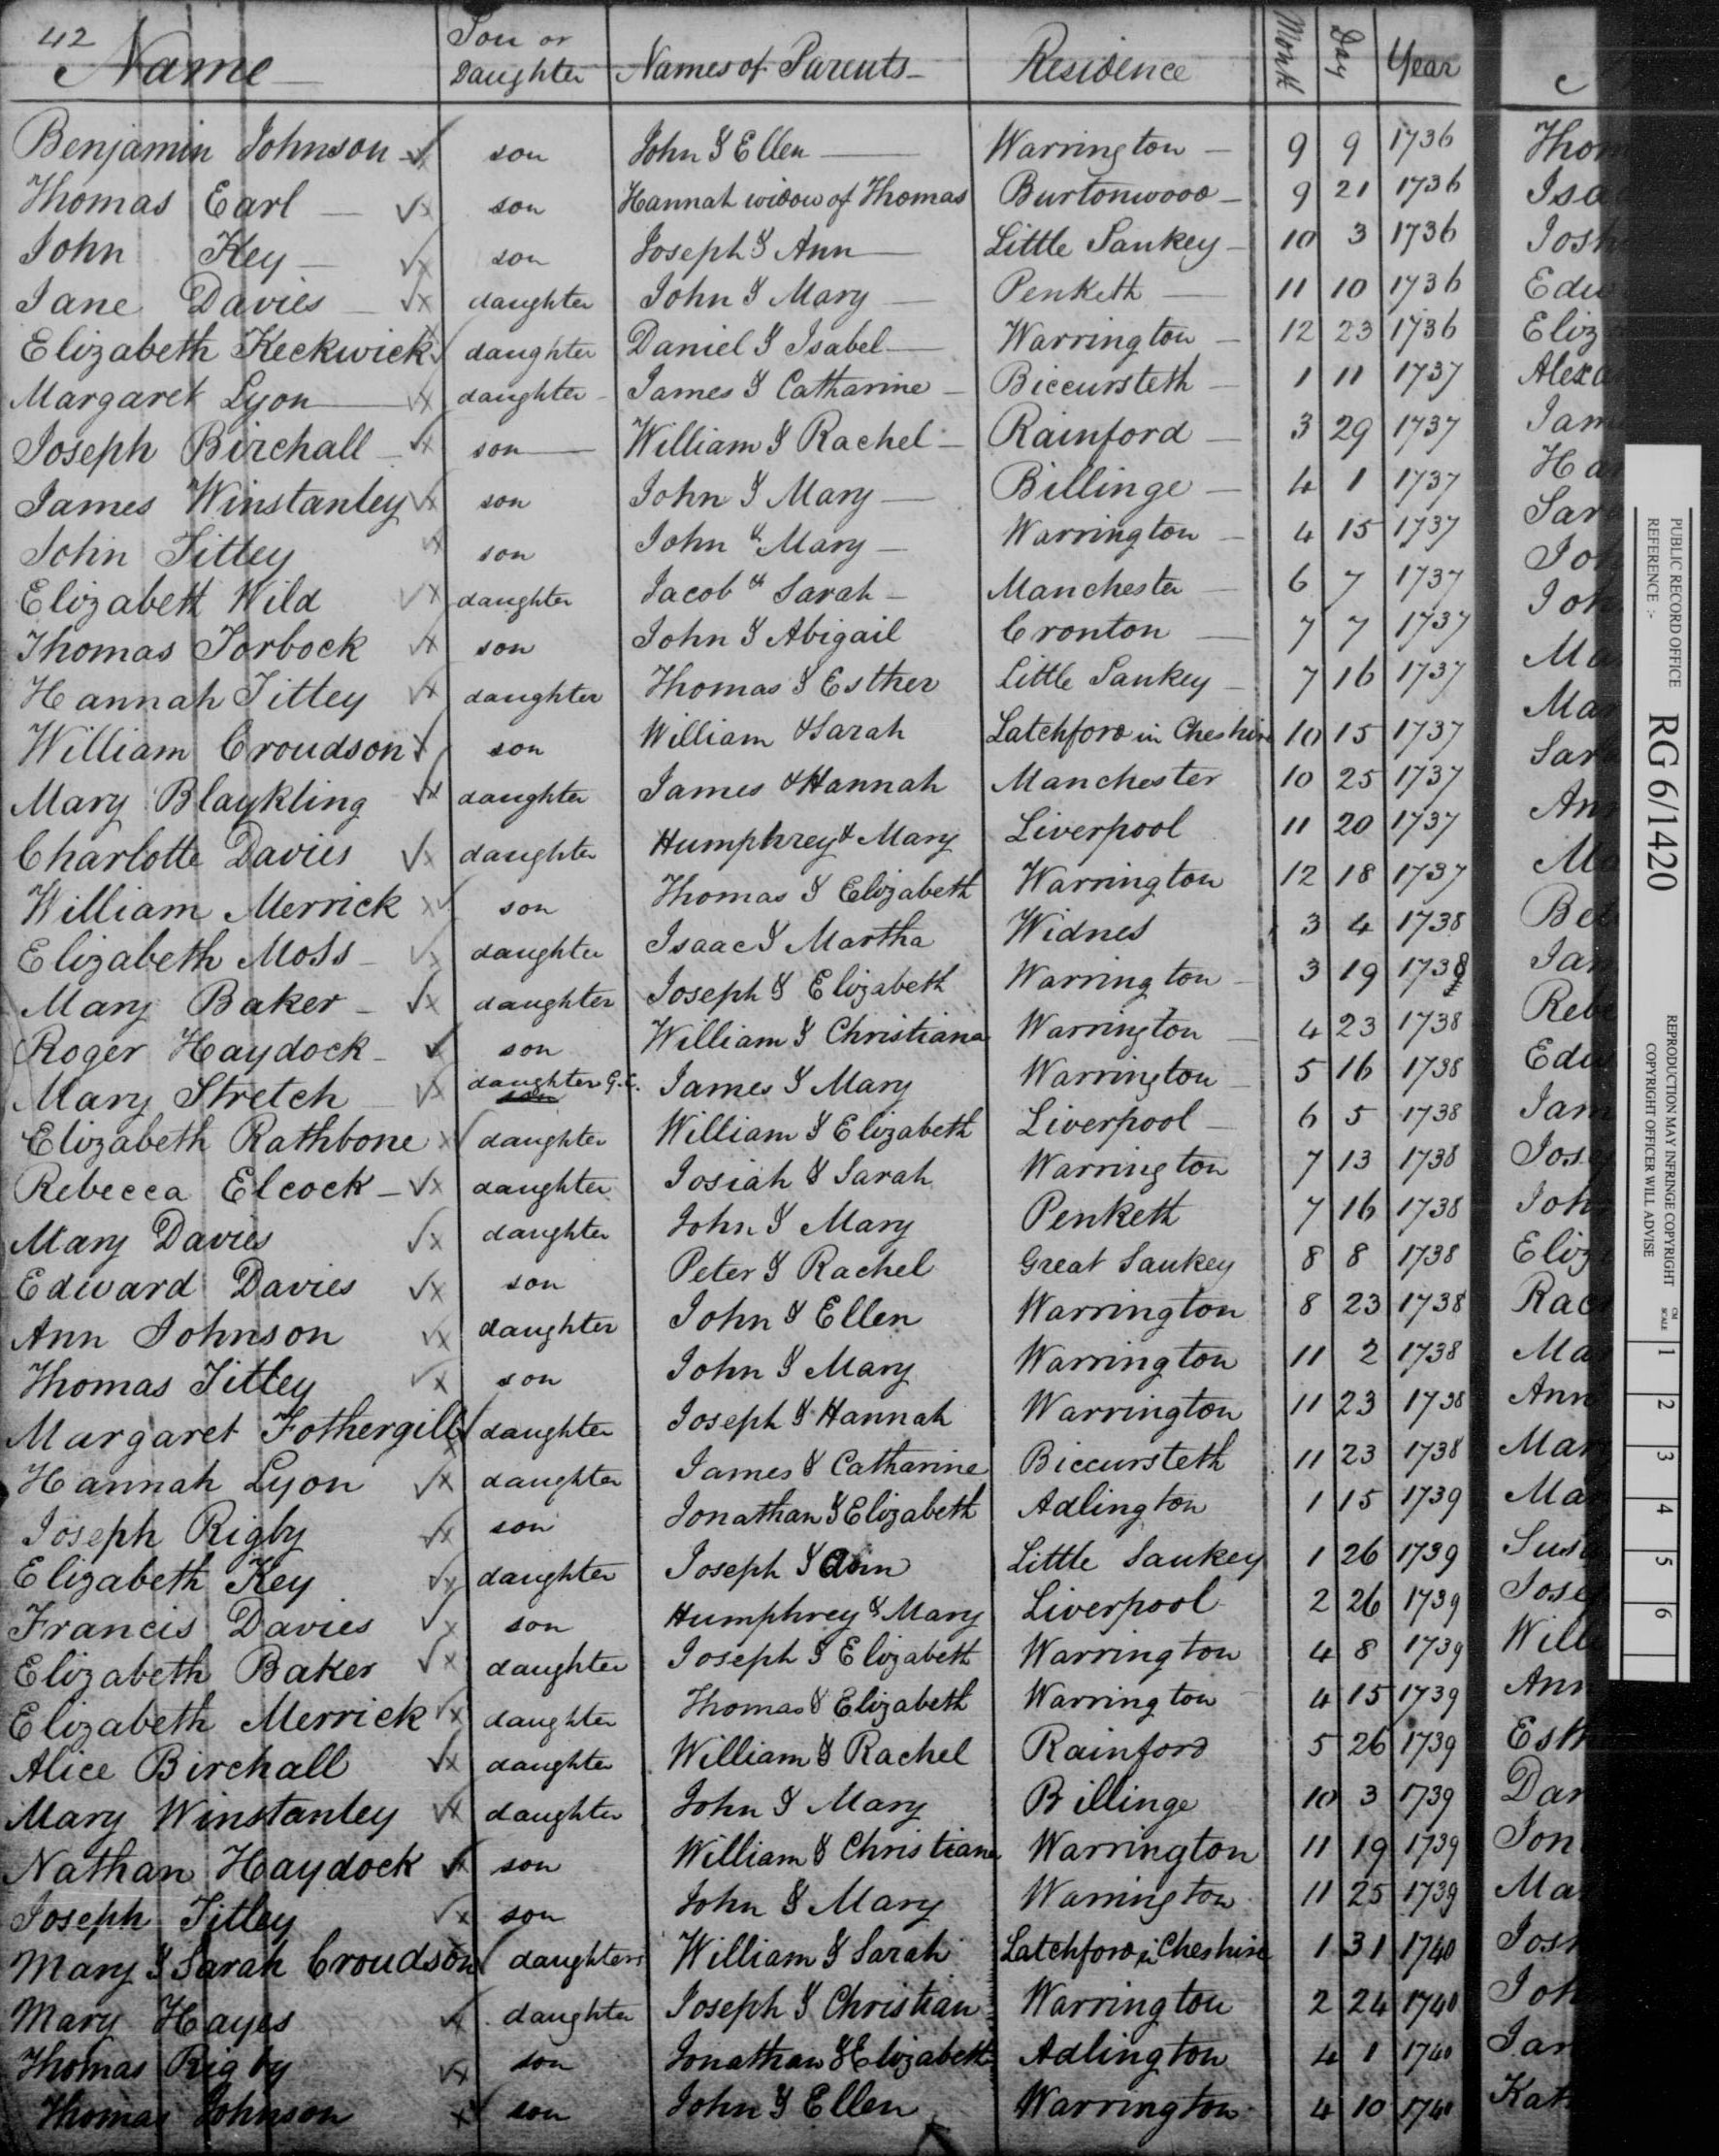 42
Name Son or Daughter Names of Parents Residence Month Day Year
Benjamin Johnson son John & Ellen Warrington 9 9 1736
Thomas Earl son Hannah widow of Thomas Burtonwood 9 21 1736
John Key son Joseph & Ann Little Sankey 10 3 1736
Jane Davies daughter John & Mary Penketh 11 10 1736
Elizabeth Keckwick daughter Daniel & Isabel Warrington 12 23 1736
Margaret Lyon daughter James & Catharine Biccursteth 1 11 1737
Joseph Birchall son William & Rachel Rainford 3 29 1737
James Winstanley son John & Mary Billinge 4 1 1737
John Titley son John & Mary Warrington 4 15 1737
Elizabeth Wild daughter Jacob & Sarah Manchester 6 7 1737
Thomas Torbock son John & Abigail Cronton 7 7 1737
Hannah Tittey daughter Thomas & Esther Little Sankey 7 16 1737
William Croudson son William & Sarah Latchford in Cheshire 10 15 1737
Mary Blaykling daughter James & Hannah Manchester 10 25 1737
Charlotte Davies daughter Humphrey & Mary Liverpool 11 20 1737
William Merrick son Thomas & Elizabeth Warrington 12 18 1737
Elizabeth Moss daughter Isaac & Martha Widnes 3 4 1738
Mary Baker daughter Joseph & Elizabeth Warrington 3 19 1738
Roger Haydock son William & Christiana Warrington 4 23 1738
Mary Stretch daughter G.C. son James & Mary Warrington 5 16 1738
Elizabeth Rathbone daughter William & Elizabeth Liverpool 6 5 1738
Rebecca Elcock daughter Josiah & Sarah Warrington 7 13 1738
Mary Davies daughter John & Mary Penketh 7 16 1738
Edward Davies son Peter & Rachel Great Sankey 8 8 1738
Ann Johnson daughter John & Ellen Warrington 8 23 1738
Thomas Titley son John & Mary Warrington 11 2 1738
Margaret Fothergill daughter Joseph & Hannah Warrington 11 23 1738
Hannah Lyon daughter James & Catharine Biccursteth 11 23 1738
Joseph Rigby son Jonathan & Elizabeth Adlington 1 15 1739
Elizabeth Key daughter Joseph & Ann Little Sankey 1 26 1739
Francis Davies son Humphrey & Mary Liverpool 2 26 1739
Elizabeth Baker daughter Joseph & Elizabeth Warrington 4 8 1739
Elizabeth Merrick daughter Thomas & Elizabeth Warrington 4 15 1739
Alice Birchall daughter William & Rachel Rainford 5 26 1739
Mary Winstanley daughter John & Mary Billinge 10 3 1739
Nathan Haydock son William & Christiana Warrington 11 19 1739
Joseph Titley son John & Mary Warrington 11 25 1739
Mary & Sarah Croudson daughters William & Sarah Latchford in Cheshire 1 31 1740
Mary Hayes daughter Joseph & Christian Warrington 2 24 1740
Thomas Rigby son Jonathan & Elizabeth Adlington 4 1 1740
Thomas Johnson son John & Ellen Warrington 4 10 1740
PUBLIC RECORD OFFICE
REFERENCE :-
RG 6/1420
REPRODUCTION MAY INFRINGE COPYRIGHT
COPYRIGHT OFFICER WILL ADVISE
CM
SCALE
1 2 3 4 5 6